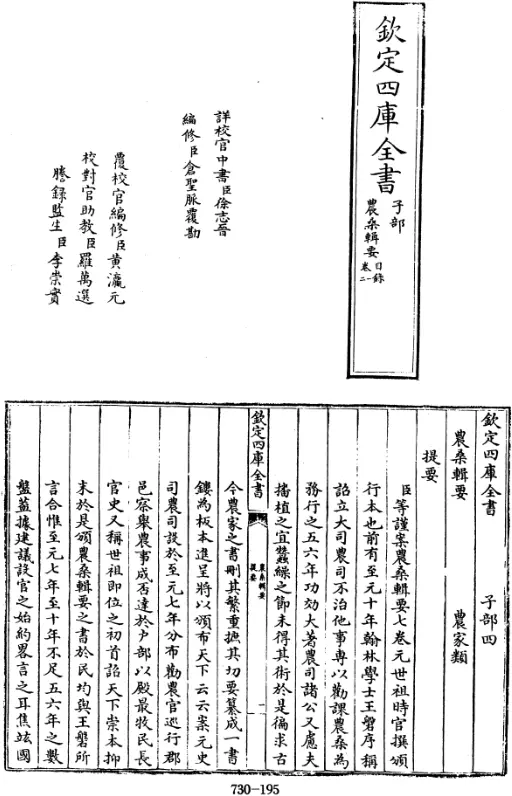 欽定四庫全書
子部
農桑輯要
目錄
卷一二
詳校官中書臣徐志晉
編修臣倉聖脈覆勘
覆校官編修臣黃瀛元
校對官助教臣羅萬選
謄錄監生臣李崇實
欽定四庫全書　子部四
農桑輯要　農家類
提要
臣等謹案農桑輯要七卷元世祖時官撰頒
行本也前有至元十年翰林學士王磐序稱
詔立大司農司不治他事専以勸課農桑為
務行之五六年功効大著農司諸公又慮夫
播植之宜蠶繅之節未得其術於是徧求古
欽定四庫全書
農桑輯要
提要
一
今農家之書刪其繁重摭其切要纂成一書
鏤為板本進呈將以頒布天下云云案元史
司農司設於至元七年分布勸農官巡行郡
邑察舉農事成否達於户部以殿最牧民長
官史又稱世祖即位之初首詔天下崇本抑
末於是頒農桑輯要之書於民均與王磐所
言合惟至元七年至十年不足五六年之數
盤蓋據建議設官之始約畧言之耳焦竑國
730-195